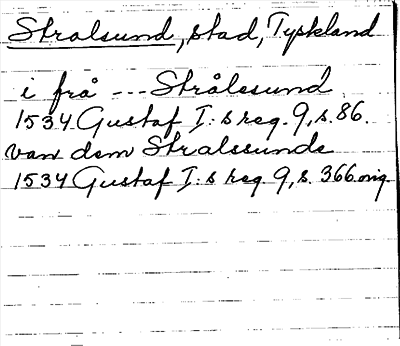 Stralsund, stad, Tyskland
i frå --- Strålesund
1534 Gustaf I:s reg. 9, s. 86.
van dem Stralssunde
1534 Gustaf I:s reg. 9, s. 366 orig.